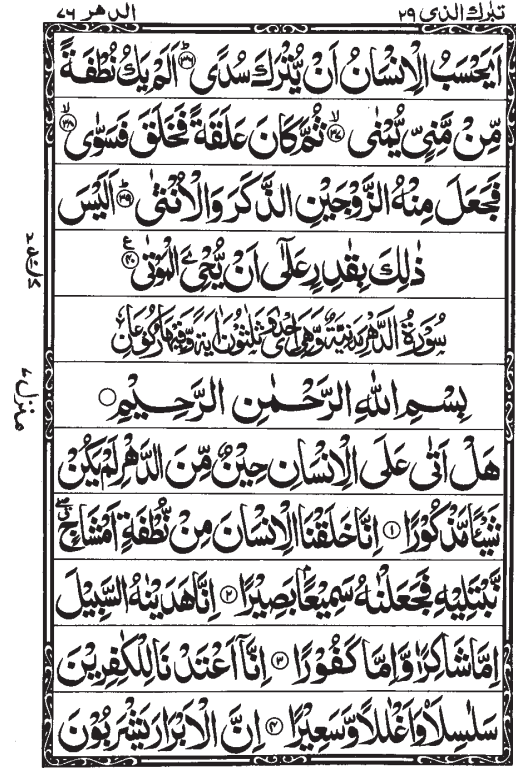 تبٰرك الذی ۲۹
الدھر ۷۶
اَیَحْسَبُ الْاِنْسَانُ اَنْ یُّتْرَكَ سُدًی ؕ۝۳۶ اَلَمْ یَكُ نُطْفَةً
مِّنْ مَّنِیٍّ یُّمْنٰی ۙ۝۳۷ ثُمَّ كَانَ عَلَقَةً فَخَلَقَ فَسَوّٰی ۙ۝۳۸
فَجَعَلَ مِنْهُ الزَّوْجَیْنِ الذَّكَرَ وَالْاُنْثٰی ؕ۝۳۹ اَلَیْسَ
ذٰلِكَ بِقٰدِرٍ عَلٰۤی اَنْ یُّحْیِۦَ الْمَوْتٰی ۝۴۰ ع
سُوْرَةُ الدَّهْرِ مَدَنِیَّةٌ وَّهِیَ اِحْدٰی وَثَلٰثُوْنَ اٰیَةً وَّفِیْهَا رُكُوْعَانِ
بِسْمِ اللهِ الرَّحْمٰنِ الرَّحِیْمِ ۝
هَلْ اَتٰی عَلَی الْاِنْسَانِ حِیْنٌ مِّنَ الدَّهْرِ لَمْ یَكُنْ
شَیْئًا مَّذْكُوْرًا ۝۱ اِنَّا خَلَقْنَا الْاِنْسَانَ مِنْ نُّطْفَةٍ اَمْشَاجٍ ۖۗ
نَّبْتَلِیْهِ فَجَعَلْنٰهُ سَمِیْعًۢا بَصِیْرًا ۝۲ اِنَّا هَدَیْنٰهُ السَّبِیْلَ
اِمَّا شَاكِرًا وَّاِمَّا كَفُوْرًا ۝۳ اِنَّاۤ اَعْتَدْنَا لِلْكٰفِرِیْنَ
سَلٰسِلَا۟ وَاَغْلٰلًا وَّسَعِیْرًا ۝۴ اِنَّ الْاَبْرَارَ یَشْرَبُوْنَ
منزل ۷